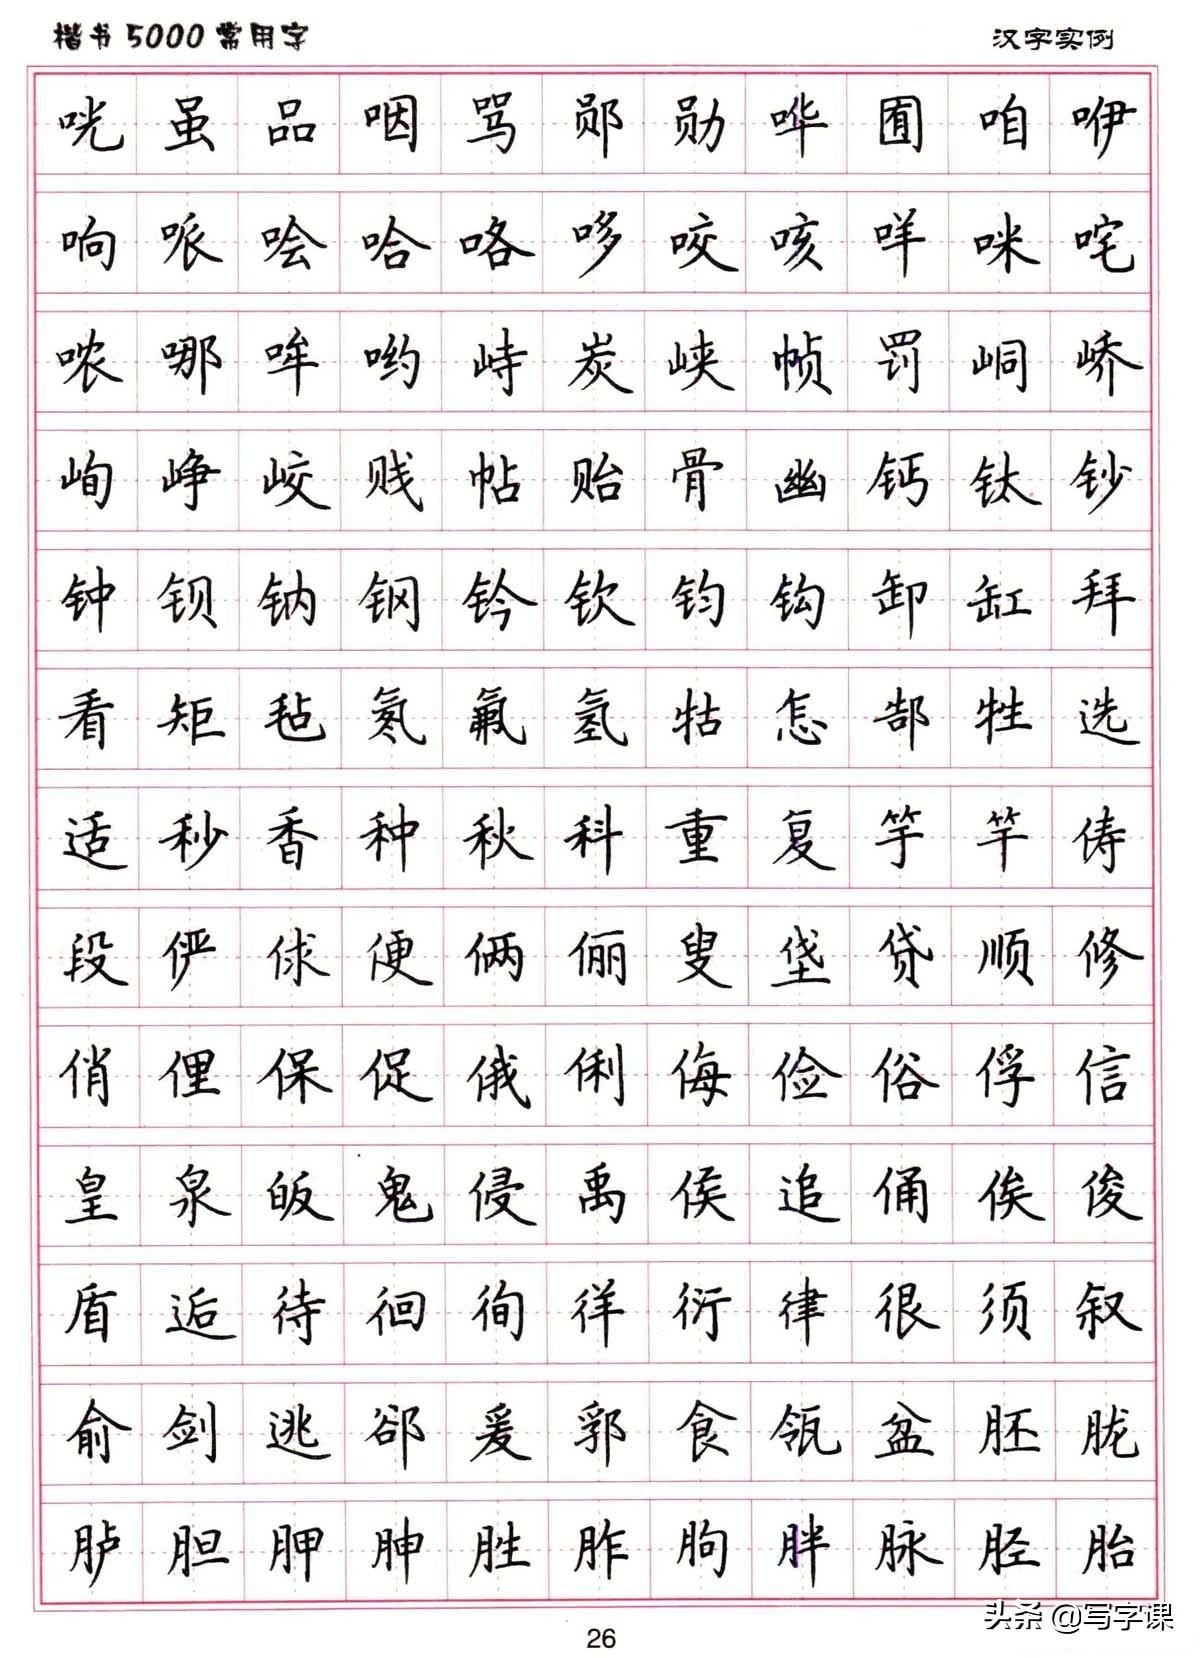 楷书5000常用字 汉字实例
咣 虽 品 咽 骂 郧 勋 哗 囿 咱 咿
响 哌 哙 哈 咯 哆 咬 咳 咩 咪 咤
哝 哪 哞 哟 峙 炭 峡 帧 罚 峒 峤
峋 峥 峧 贱 帖 贻 骨 幽 钙 钛 钞
钟 钡 钠 钢 钤 钦 钧 钩 卸 缸 拜
看 矩 毡 氡 氟 氢 牯 怎 郜 牲 选
适 秒 香 种 秋 科 重 复 竽 竿 俦
段 俨 俅 便 俩 俪 叟 垡 贷 顺 修
俏 俚 保 促 俄 俐 侮 俭 俗 俘 信
皇 泉 皈 鬼 侵 禹 侯 追 俑 俟 俊
盾 逅 待 徊 徇 徉 衍 律 很 须 叙
俞 剑 逃 郤 爰 郛 食 瓴 盆 胚 胧
胪 胆 胛 胂 胜 胙 朐 胖 脉 胫 胎
26
头条 @写字课